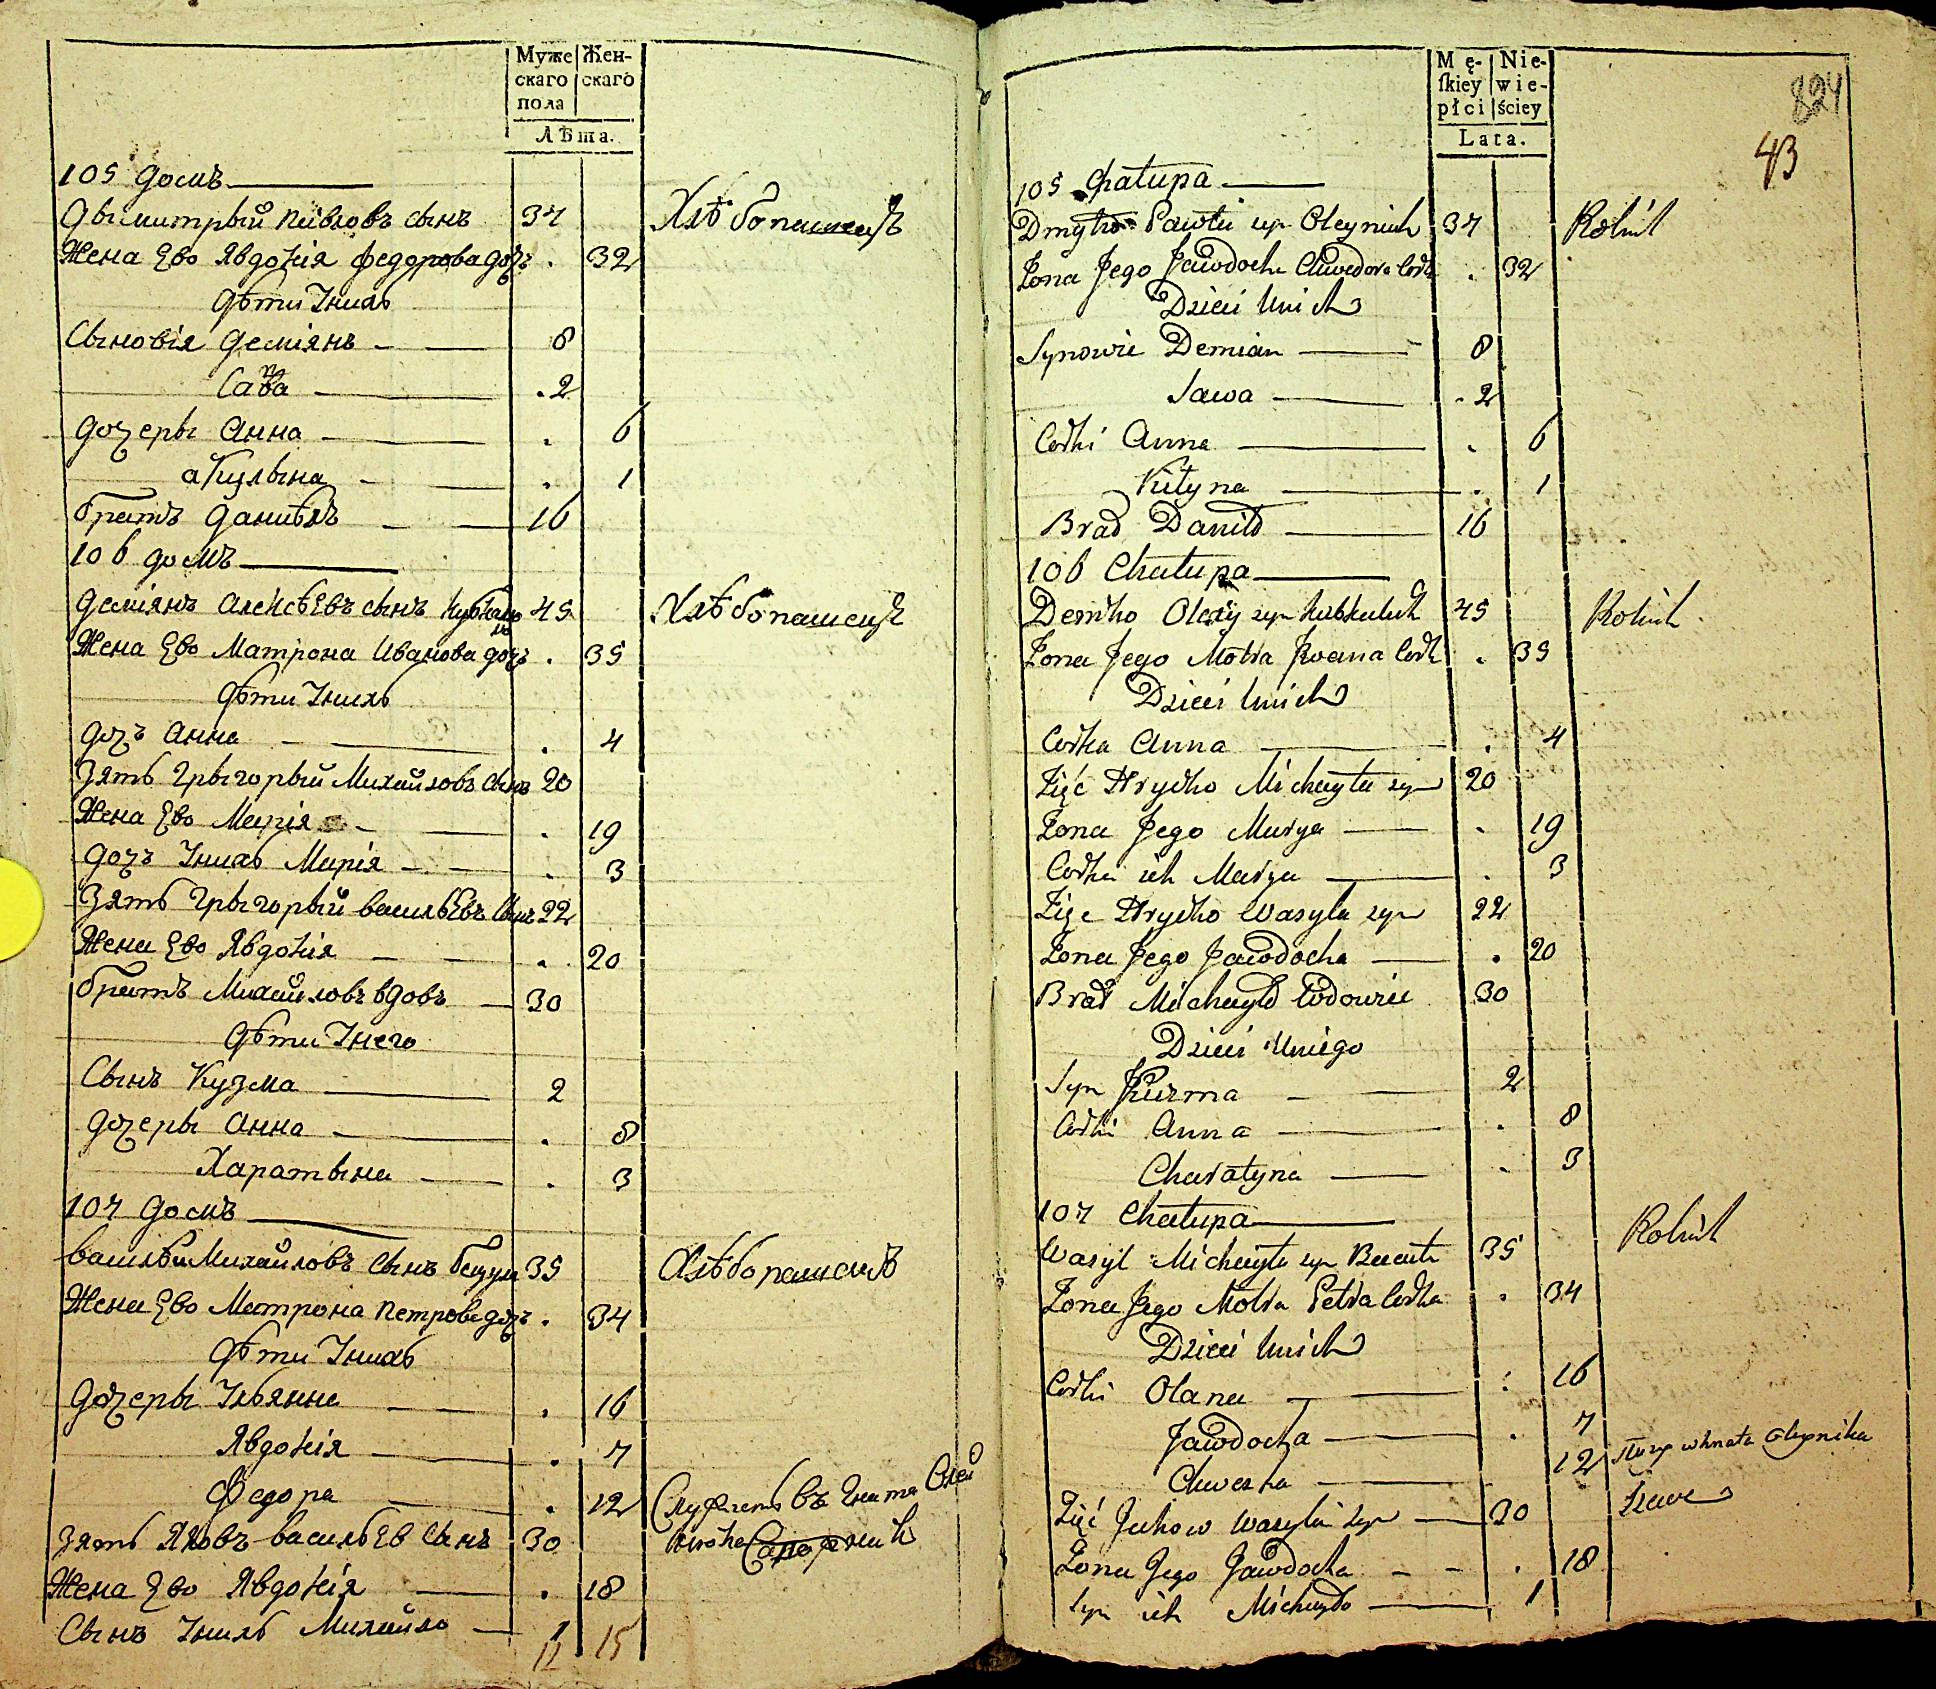 Муже Жен-
скаго скаго
пола
Лѣта.
105 домъ
Дымитрый Павловъ сынъ 37 Хлѣбопашецъ
Жена Ево Явдокія Федорова дочъ . 32
Дѣти Ихъ
Сыновія Демянъ 8
Сава . 2
дочеры Анна . 6
Акулына . 1
братъ Данило 16
106 домъ
Демянъ Алексѣевъ сынъ 45 Хлѣбопашецъ
Жена Ево Матрона Иванова дочъ . 35
Дѣти Ихъ
дочъ Анна . 4
Зять Грыгорый Михайловъ сынъ 20
Жена Ево Марія . 19
дочъ Ихъ Марія . 3
Зять Грыгорый Васильевъ сынъ 22
Жена Ево Явдокія . 20
братъ Михайловъ вдовъ 30
Дѣти Унего
Сынъ Кузма 2
дочеры Анна . 8
Харатына . 3
107 домъ
Василь Михайловъ сынъ 35 Хлѣбопашецъ
Жена Ево Матрона Петрова дочъ . 34
Дѣти Ихъ
дочеры Ульянна . 16
Явдокія . 7
Федора . 12 Служитъ въ Гната Олей
Зять Яковъ Васильев сынъ 30
Жена Ево Явдокія . 18
Сынъ Ихъ Михайло 1
11 15
Mę- Nie-
ſkiey wie-
płci ściey
Lata.
824
43
105 Chałupa
Dmytro Pawła syn Oleynik 37 Rolnik
Żona Jego Jawdocha Chwedora Córka . 32
Dzieci Unich
Synowie Demian 8
Sawa . 2
Corki Anna . 6
Kilyna . 1
Brat Daniło 16
106 Chałupa
Demko Olexy syn 45 Rolnik
Żona Jego Motra Iwana Cork . 35
Dzieci Unich
Corka Anna . 4
Zięć Hryćko Michayła syn 20
Żona Jego Marya . 19
Corka ich Marya . 3
Zięć Hryćko Wasyla syn 22
Żona Jego Jawdocha . 20
Brat Michayło Wdowiec 30
Dzieci Uniego
Syn Kuzma 2
Corki Anna . 8
Charatyna . 3
107 Chałupa
Wasyl Michayła syn 35 Rolnik
Żona Jego Motra Petra Corka . 34
Dzieci Unich
Corki Olana . 16
Jawdocha . 7
Chweska 12 Służy u Hnata Oleynika
Zięć Jakow Wasyla Syn 30 Szewc
Żona Jego Jawdocha . 18
Syn ich Michayło 1